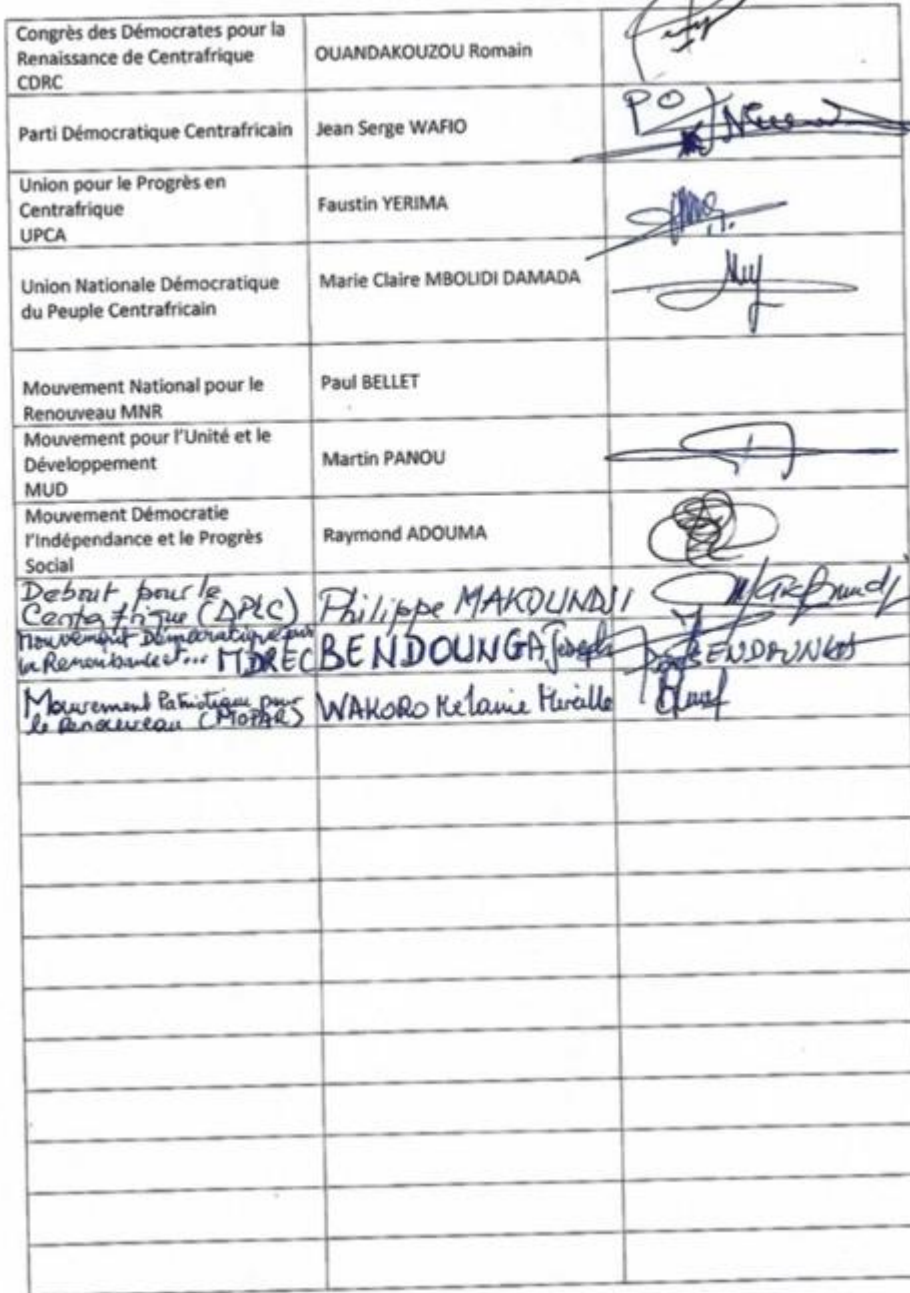 Congrès des Démocrates pour la
Renaissance de Centrafrique
CDRC
OUANDAKOUZOU Romain
Parti Démocratique Centrafricain
Jean Serge WAFIO
PO
Union pour le Progrès en
Centrafrique
UPCA
Faustin YERIMA
Union Nationale Démocratique
du Peuple Centrafricain
Marie Claire MBOLIDI DAMADA
Mouvement National pour le
Renouveau MNR
Paul BELLET
Mouvement pour l'Unité et le
Développement
MUD
Martin PANOU
Mouvement Démocratie
l'Indépendance et le Progrès
Social
Raymond ADOUMA
Debout pour le
Centrafrique (DPLC)
Philippe MAKOUNDJI
Mouvement Démocratique pour
la Renaissance et... MDREC
BENDOUNGA Joseph
BENDOUNGA
Mouvement Patriotique pour
le Renouveau (MOPAR)
WAKORO Melanie Mireille